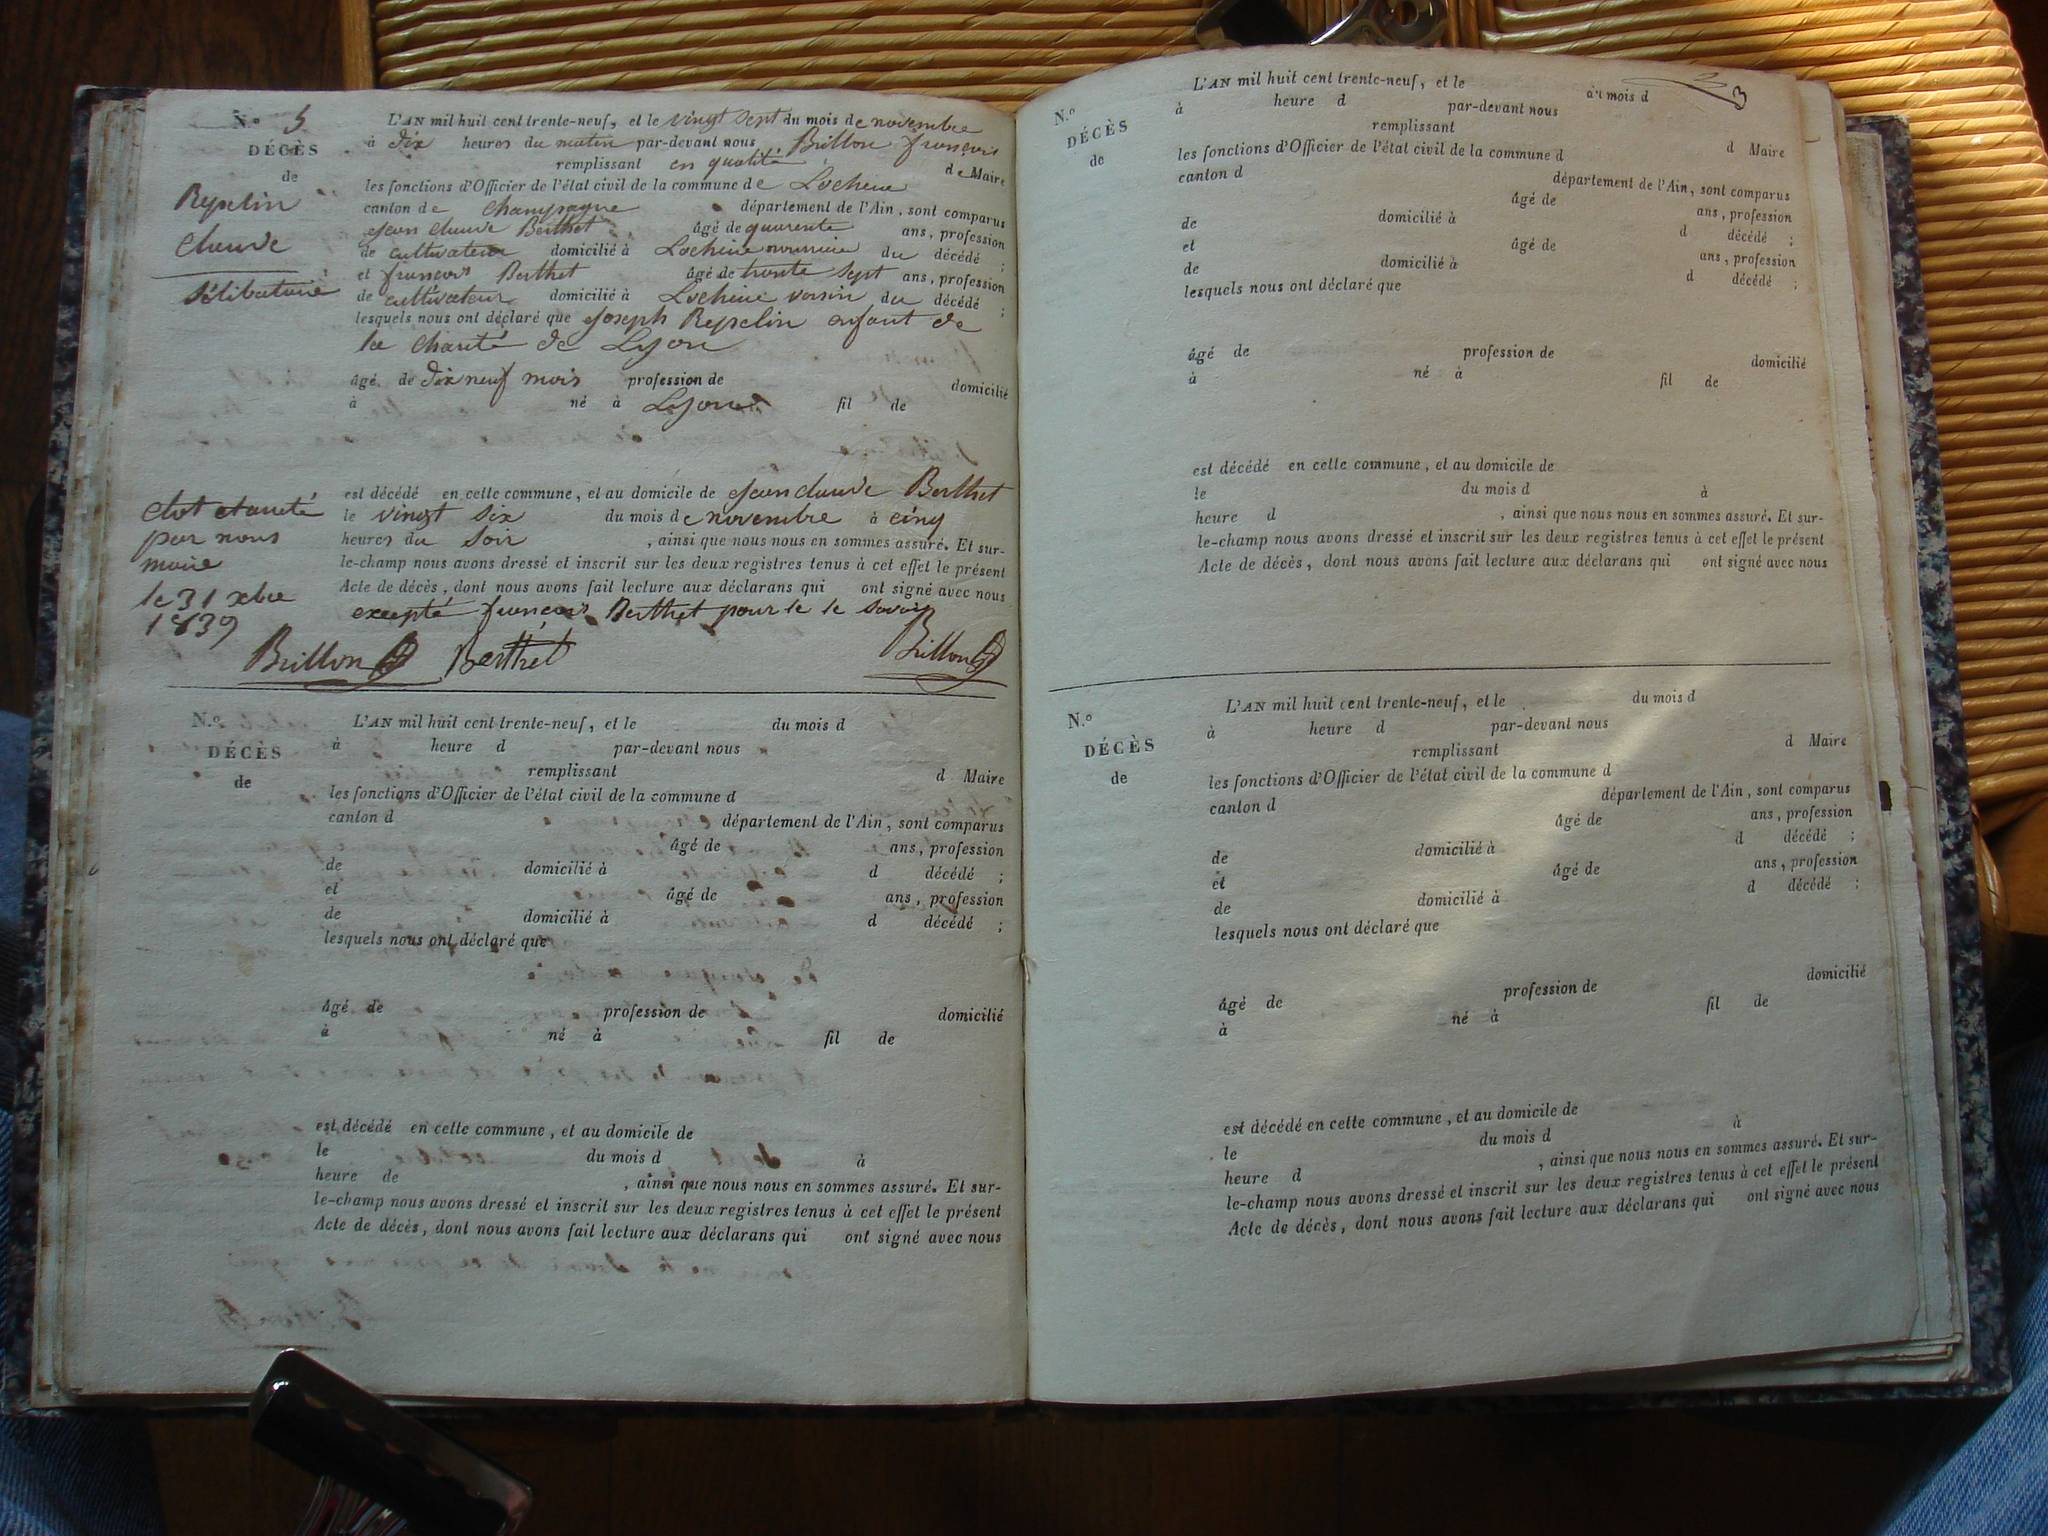 N.° 5
DÉCÈS
de
Repelin
Claude
Sélibataire
L'AN mil huit cent trente-neuf, et le vingt sept du mois de novembre
à dix heures du matin par-devant nous Brillon françois
remplissant en qualité de Maire
les fonctions d'Officier de l'état civil de la commune de Lochieu
canton de Champagne département de l'Ain, sont comparus
Jean Claude Berthet âgé de quarente ans, profession
de cultivateur domicilié à Lochieu nourricier du décédé ;
et françois Berthet âgé de trente sept ans, profession
de cultivateur domicilié à Lochieu voisin du décédé ;
lesquels nous ont déclaré que Joseph Repelin enfant de
la charité de Lyon
âgé de dix neuf mois profession de domicilié
à né à Lyon fil de
est décédé en cette commune, et au domicile de Jean claude Berthet
le vingt six du mois de novembre à cinq
heures du soir , ainsi que nous nous en sommes assuré. Et sur-
le-champ nous avons dressé et inscrit sur les deux registres tenus à cet effet le présent
Acte de décès, dont nous avons fait lecture aux déclarans qui ont signé avec nous
excepté françois Berthet pour le le savoir
Brillon Berthet Brillon
Clot et arreté
par nous
maire
le 31 xbre
1839
N.°
DÉCÈS
de
L'AN mil huit cent trente-neuf, et le du mois d
à heure d par-devant nous
remplissant d Maire
les fonctions d'Officier de l'état civil de la commune d
canton d département de l'Ain, sont comparus
âgé de ans, profession
de domicilié à d décédé ;
et âgé de ans, profession
de domicilié à d décédé ;
lesquels nous ont déclaré que
âgé de profession de domicilié
à né à fil de
est décédé en cette commune, et au domicile de
le du mois d à
heure de , ainsi que nous nous en sommes assuré. Et sur-
le-champ nous avons dressé et inscrit sur les deux registres tenus à cet effet le présent
Acte de décès, dont nous avons fait lecture aux déclarans qui ont signé avec nous
3
N.°
DÉCÈS
de
L'AN mil huit cent trente-neuf, et le du mois d
à heure d par-devant nous
remplissant d Maire
les fonctions d'Officier de l'état civil de la commune d
canton d département de l'Ain, sont comparus
âgé de ans, profession
de domicilié à d décédé ;
et âgé de ans, profession
de domicilié à d décédé ;
lesquels nous ont déclaré que
âgé de profession de domicilié
à né à fil de
est décédé en cette commune, et au domicile de
le du mois d à
heure d , ainsi que nous nous en sommes assuré. Et sur-
le-champ nous avons dressé et inscrit sur les deux registres tenus à cet effet le présent
Acte de décès, dont nous avons fait lecture aux déclarans qui ont signé avec nous
N.°
DÉCÈS
de
L'AN mil huit cent trente-neuf, et le du mois d
à heure d par-devant nous
remplissant d Maire
les fonctions d'Officier de l'état civil de la commune d
canton d département de l'Ain, sont comparus
âgé de ans, profession
de domicilié à d décédé ;
et âgé de ans, profession
de domicilié à d décédé ;
lesquels nous ont déclaré que
âgé de profession de domicilié
à né à fil de
est décédé en cette commune, et au domicile de
le du mois d à
heure d , ainsi que nous nous en sommes assuré. Et sur-
le-champ nous avons dressé et inscrit sur les deux registres tenus à cet effet le présent
Acte de décès, dont nous avons fait lecture aux déclarans qui ont signé avec nous